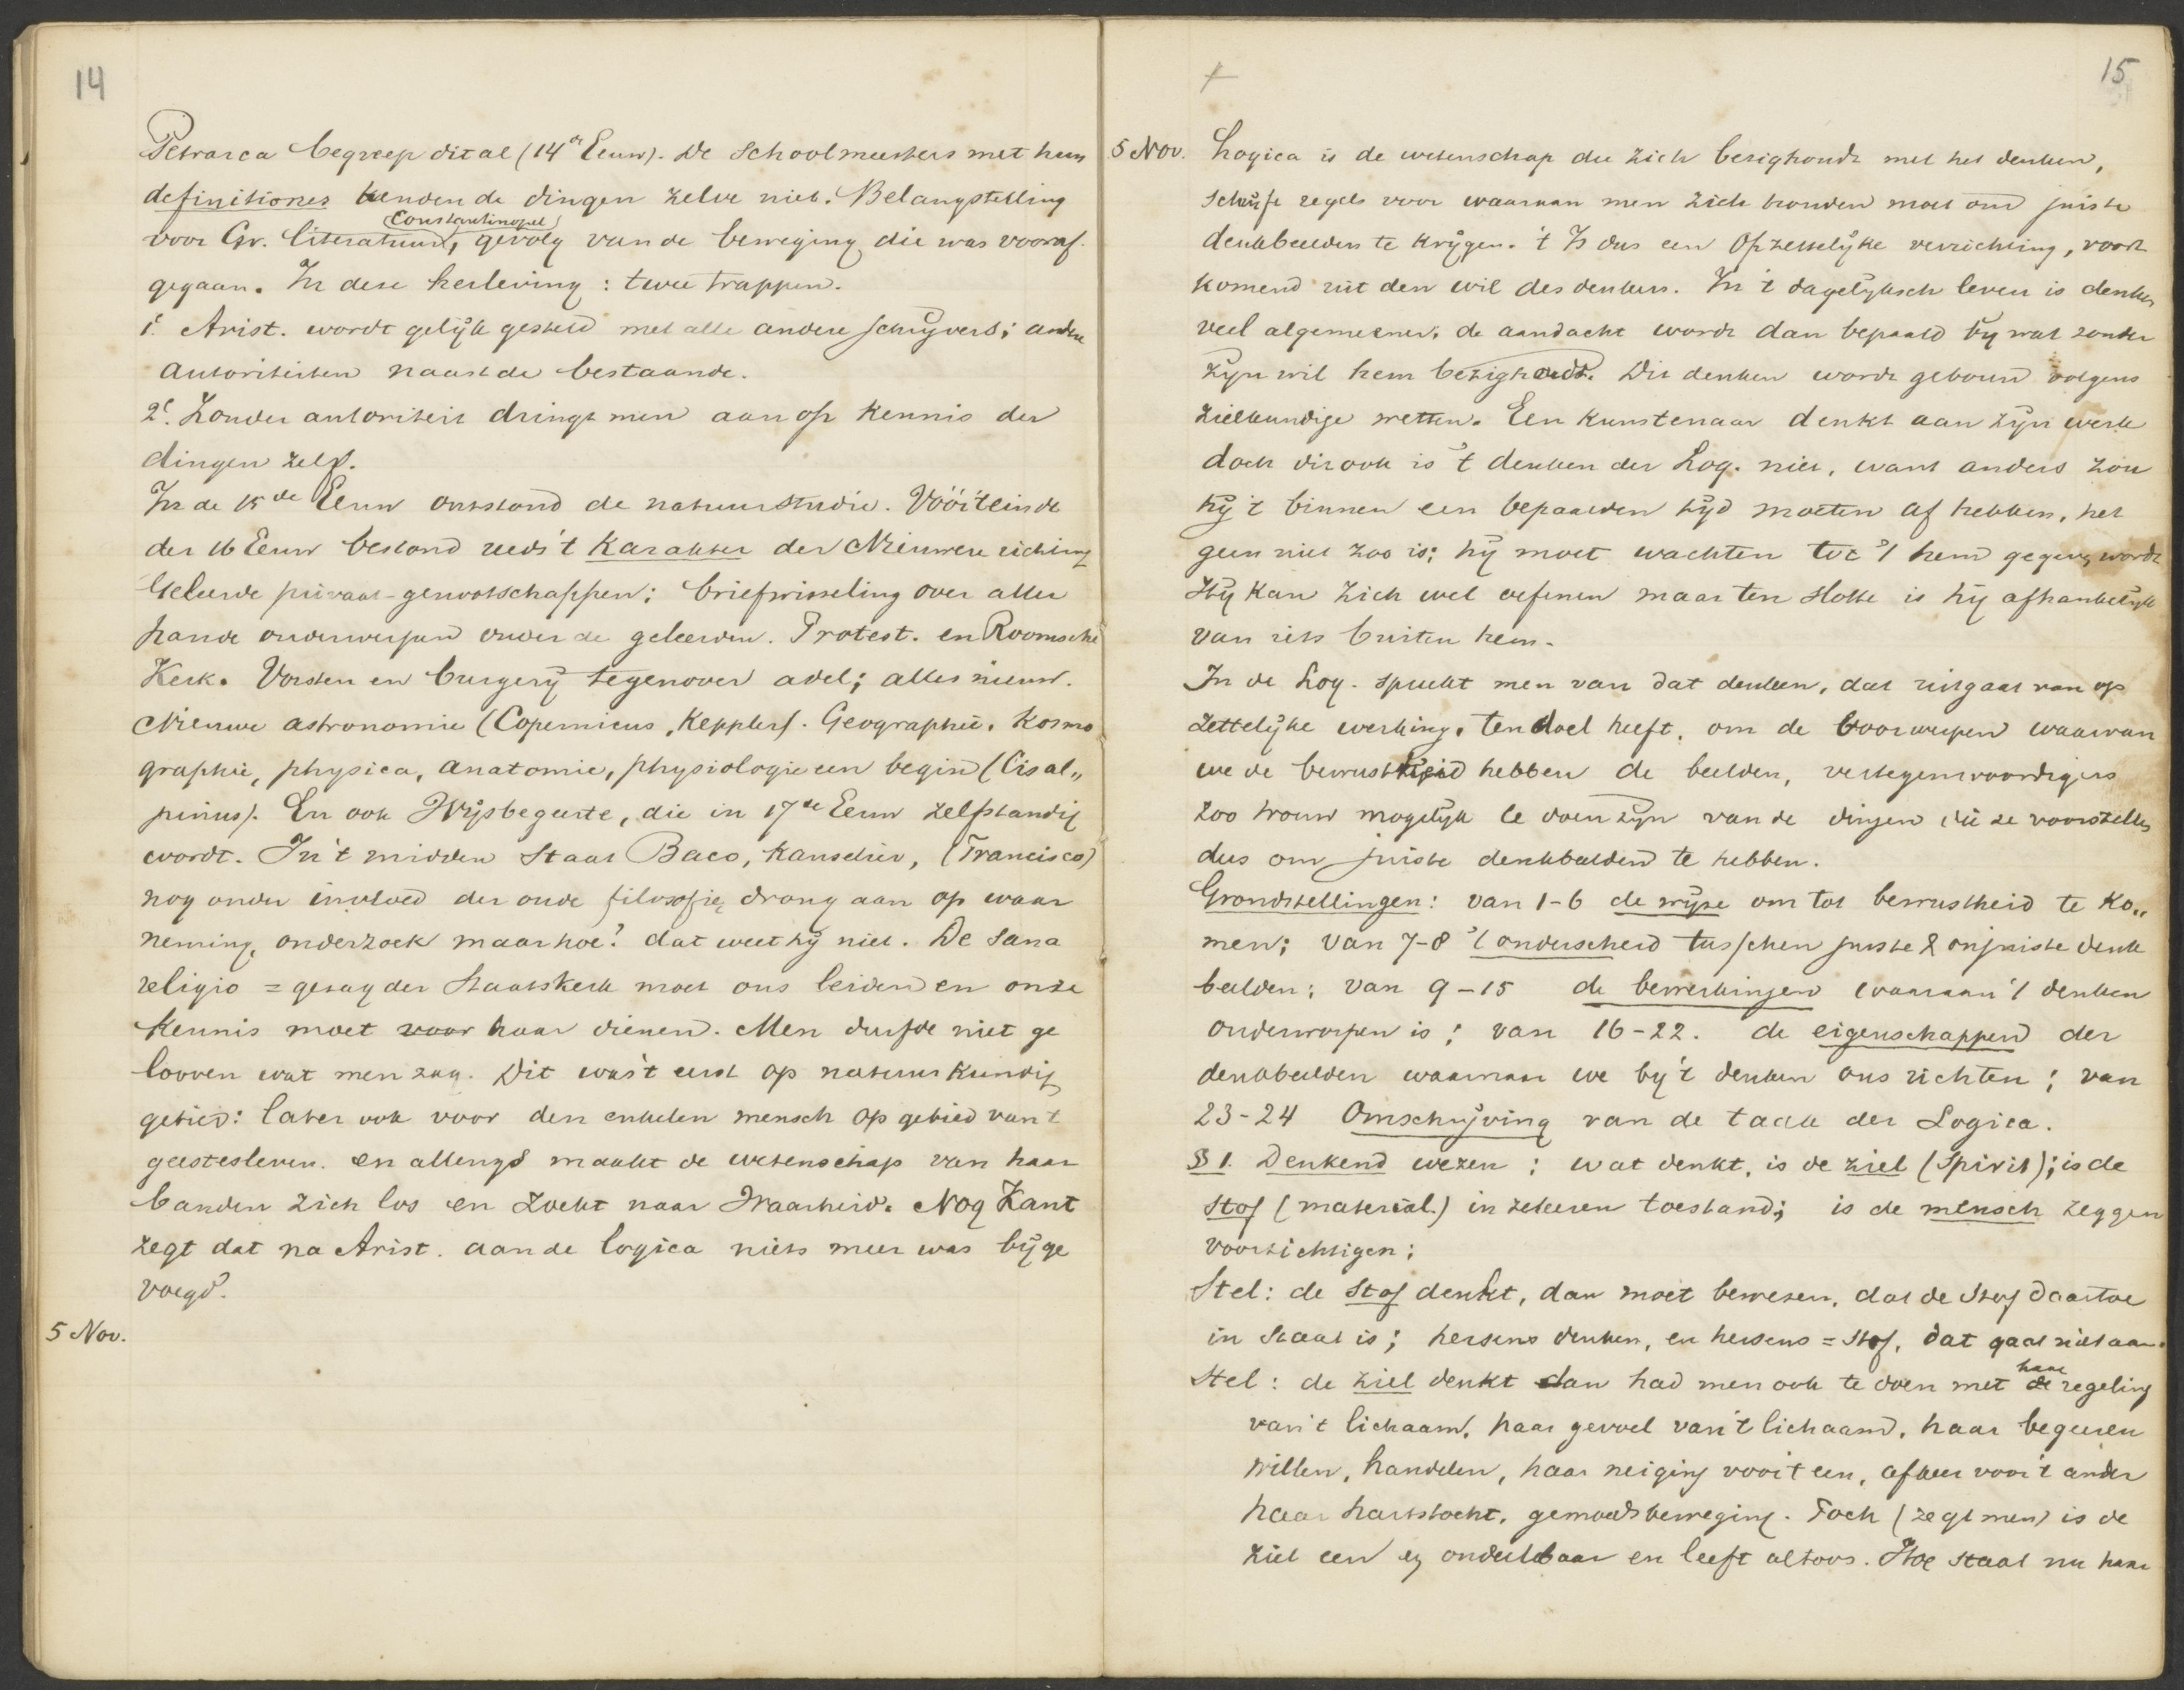 14
Petrarca begreep dit al (14de Eeuw). De Schoolmeesters met hun
definitiones kenden de dingen zelve niet. Belangstelling
Constantinopel
voor Gr. literatuur, gevolg van de beweging die was vooraf
gegaan. In deze herleving: twee trappen.
1o. Arist. wordt gelijk gesteld met alle andere schrijvers; andere
autoriteiten naast de bestaande.
2o. Zonder autoriteit dringt men aan op kennis der
dingen zelf.
In de 15de Eeuw ontstond de natuurstudie. Vóór 't einde
der 16 Eeuw bestond reeds 't Karakter der Nieuwere richting
Geleerde privaat-genootschappen; briefwisseling over aller
hande onderwerpen onder de geleerden. Protest. en Roomsche
Kerk. Vorsten en burgerij tegenover adel; alles nieuw.
Nieuwe astronomie (Copernicus, Kepplers). Geographie, Kosmo
graphie, physica, anatomie, physiologie een begin (Cisal„
pinus). En ook Wijsbegeerte, die in 17de Eeuw zelfstandig
wordt. In 't midden staat Baco, Kanselier, (Francisco)
nog onder invloed der oude filosofie, drong aan op waar
neming, onderzoek maar hoe? dat weet hij niet. De sana
religio = gezag der Staatskerk moet ons leiden en onze
kennis moet voor haar dienen. Men durfde niet ge
looven wat men zag. Dit was 't eerst op natuurkundig
gebied: later ook voor den enkelen mensch op gebied van 't
geestesleven. en allengs maakt de wetenschap van haar
banden zich los en zoekt naar Waarheid. Nog Kant
zegt dat na Arist. aan de logica niets meer was bijge
voegd.
5 Nov.
15
5 Nov. Logica is de wetenschap die zich bezighoudt met het denken,
schrijft regels voor waaraan men zich houden moet om juiste
denkbeelden te krijgen. 't Is dus een opzettelijke verrichting, voort
komend uit den wil des denkers. In 't dagelijksch leven is denken
veel algemeener; de aandacht wordt dan bepaald bij wat zonder
zijn wil hem bezighoudt. Dit denken wordt geboren volgens
zielkundige wetten. Een kunstenaar denkt aan zijn werk
doch dit ook is 't denken der Log. niet, want anders zou
hij 't binnen een bepaalden tijd moeten af hebben, het
geen niet zoo is; hij moet wachten tot 't hem gegeven wordt
Hij kan zich wel oefenen maar ten slotte is hij afhankelijk
van iets buiten hem.
In de Log. spreekt men van dat denken, dat uitgaat van op
zettelijke werking, ten doel heeft, om de voorwerpen waarvan
we de bewustheid hebben de beelden, vertegenwoordigers
zoo trouw mogelijk te doen zijn van de dingen die ze voorstellen
dus om juiste denkbeelden te hebben.
Grondstellingen: van 1-6 de wijze om tot bewustheid te ko„
men; van 7-8 't onderscheid tusschen juiste & onjuiste denk
beelden; van 9-15 de bewerkingen waaraan 't denken
onderworpen is; van 16-22. de eigenschappen der
denkbeelden waarnaar we bij 't denken ons richten; van
23-24 Omschrijving van de taak der Logica.
§ 1. Denkend wezen; wat denkt, is de ziel (Spirit); is de
Stof (material.) in zekeren toestand; is de mensch zeggen
voorzichtigen;
Stel: de Stof denkt, dan moet bewezen, dat de Stof daartoe
in Staat is; hersens denken, en hersens = Stof, dat gaat niet aan.
haar
Stel: de ziel denkt dan had men ook te doen met de regeling
van 't lichaam, haar gevoel van 't lichaam, haar begeeren
willen, handelen, haar neiging voor 't een, afkeer voor 't ander
haar hartstocht, gemoedsbeweging. Toch (zegt men) is de
ziel een en ondeelbaar en leeft altoos. Hoe staat nu haar